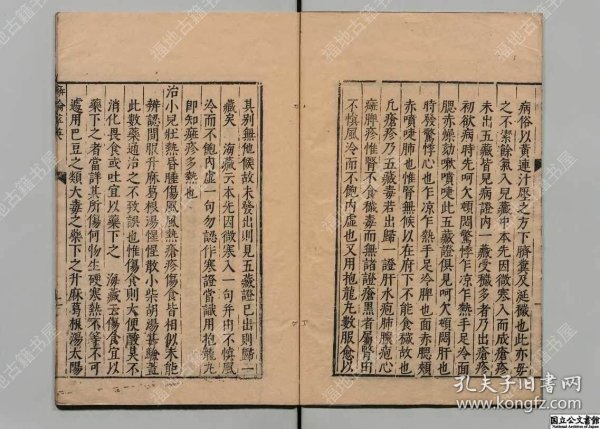 病俗以黃連汁壓之方下臍糞及涎穢也此亦毋
之不素餘氣入兒藏中本先因微寒入而成瘡疹
未出五藏皆見病證內一藏受穢多者乃出瘡疹
初欲病時先呵欠頓悶驚悸乍涼乍熱手足冷面
腮赤燥咳嗽噴嚏此五藏證俱見呵欠頓悶肝也
時發驚悸心也乍涼乍熱手足冷脾也面赤腮頰
赤噴嚏肺也惟腎無候以在府下不能食穢故也
凡瘡疹乃五藏毒若出歸一證肝水疱肺膿疱心
斑脾疹惟腎不食穢毒而無諸證瘡黑者屬腎由
不慎風冷而不飽內虛也又用抱龍丸數服愈以
其別無他候故未發出則見五藏證已出則歸一
藏矣 海藏云本先因微寒入一句并由不慎風
冷而不飽內虛一句勿認作寒證當識用抱龍丸
即知斑疹多熱也
治小兒壯熱昏睡傷風風熱瘡疹傷食皆相似未能
辨認間服升麻葛根湯惺惺散小柴胡湯甚驗蓋
此數藥通治之不致誤也惟傷食則大便酸臭不
消化畏食或吐宜以藥下之 海藏云傷食宜以
藥下之者當詳其所傷何物生硬寒熱不等不可
遽用巴豆之類大毒之藥下之升麻葛根湯太陽
孔夫子旧书网
www.kongfz.com
国立公文書館
National Archives of Japan
福地古籍书屋